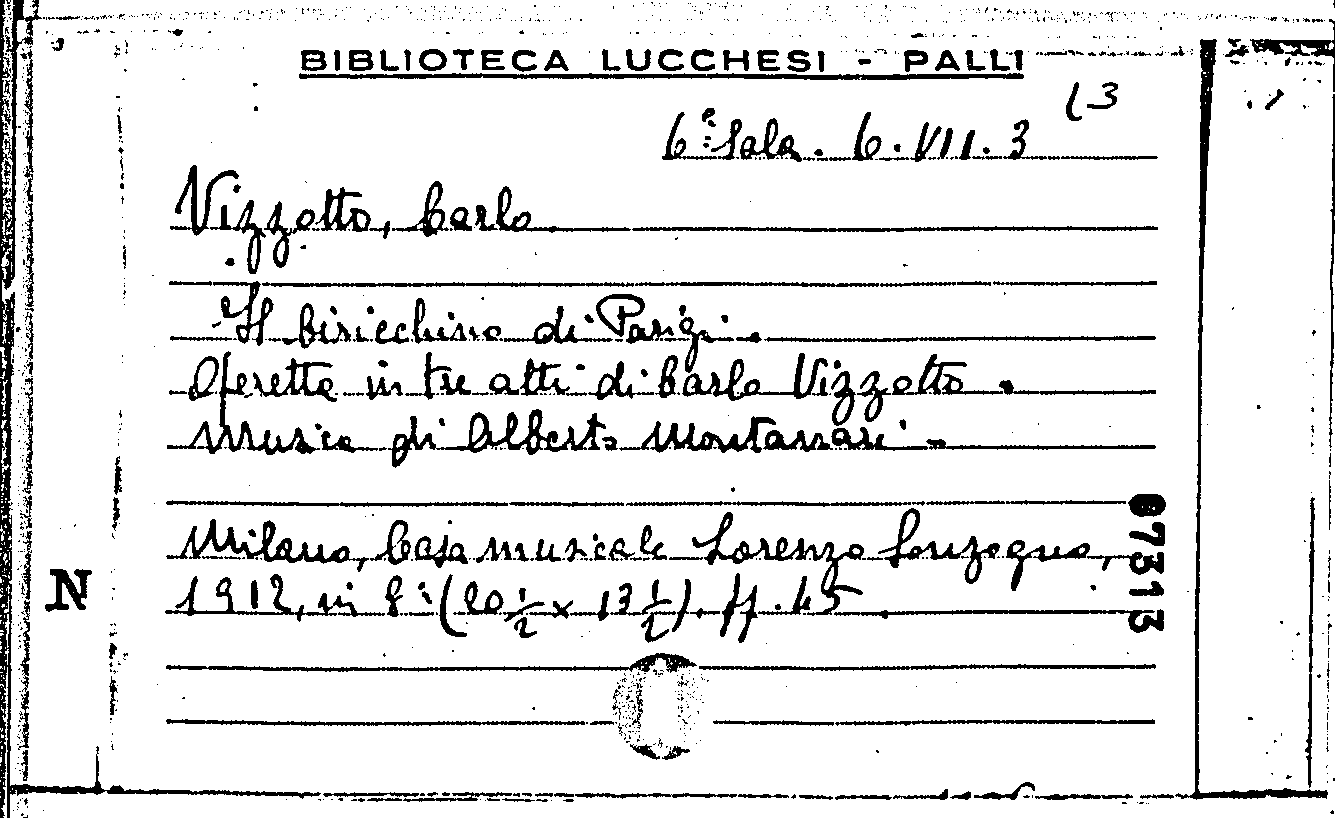 BIBLIOTECA LUCCHESI - PALLI
6ª Sala. 6.VII.3
Vizzotto, Carlo.
Il biricchino di Parigi.
Operetta in tre atti di Carlo Vizzotto.
Musica di Alberto Montanari.
Milano, Casa musicale Lorenzo Sonzogno,
1912, in 8° (20 1/2 x 13 1/2). pp. 45.
N
07313